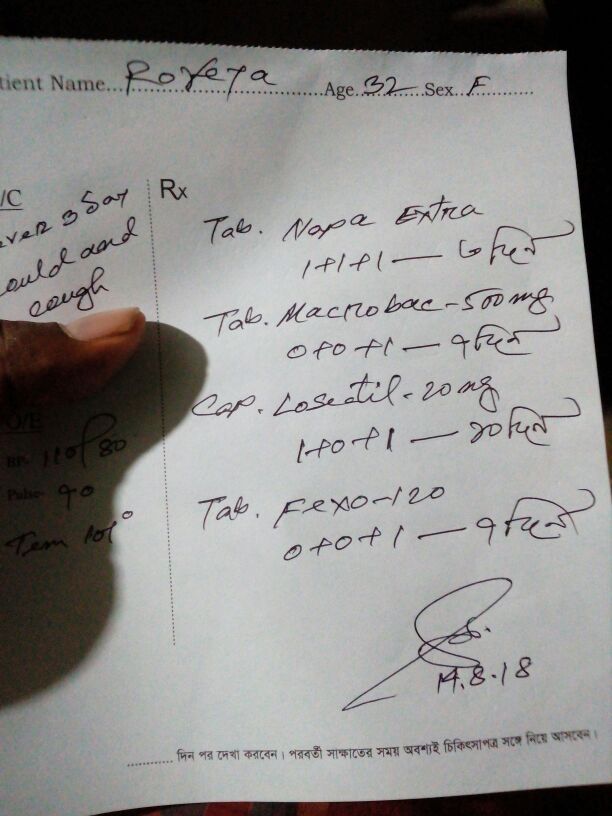 tient Name... Roveya Age 32 Sex F
/C
ever 3 day
could and
cough
O/E
BP- 110/80
Pulse- 90
Tem 101°
Rx
Tab. Napa Extra
1+1+1 — ৩ দিন
Tab. Macrobac-500mg
0+0+1 — ৭ দিন
Cap. Losectil-20 mg
1+0+1 — ২০ দিন
Tab. Fexo-120
0+0+1 — ৭ দিন
14.8.18
............ দিন পর দেখা করবেন। পরবর্তী সাক্ষাতের সময় অবশ্যই চিকিৎসাপত্র সঙ্গে নিয়ে আসবেন।